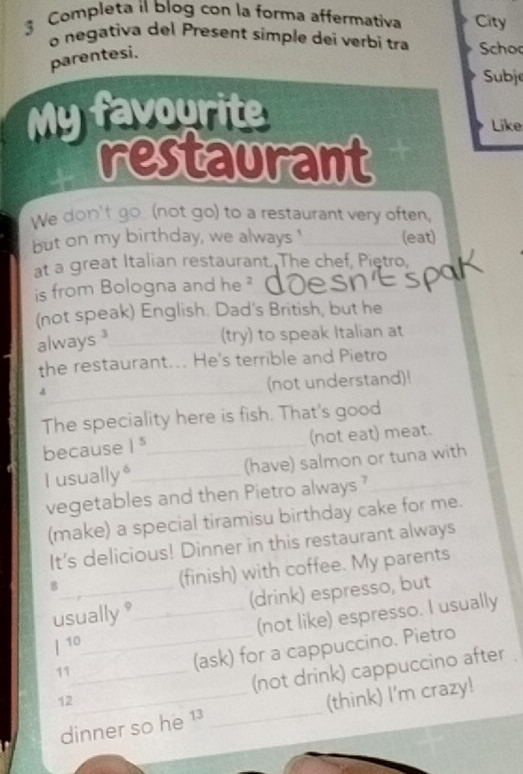 3 Completa il blog con la forma affermativa
o negativa del Present simple dei verbi tra
parentesi.
My favourite
restaurant
We don't go (not go) to a restaurant very often,
but on my birthday, we always ¹ (eat)
at a great Italian restaurant. The chef, Pietro,
is from Bologna and he ² doesn't spak
(not speak) English. Dad's British, but he
always ³ (try) to speak Italian at
the restaurant... He's terrible and Pietro
⁴ (not understand)!
The speciality here is fish. That's good
because I ⁵ (not eat) meat.
I usually ⁶ (have) salmon or tuna with
vegetables and then Pietro always ⁷
(make) a special tiramisu birthday cake for me.
It's delicious! Dinner in this restaurant always
⁸ (finish) with coffee. My parents
usually ⁹ (drink) espresso, but
I ¹⁰ (not like) espresso. I usually
¹¹ (ask) for a cappuccino. Pietro
¹² (not drink) cappuccino after
dinner so he ¹³ (think) I'm crazy!
City
Schoo
Subje
Like